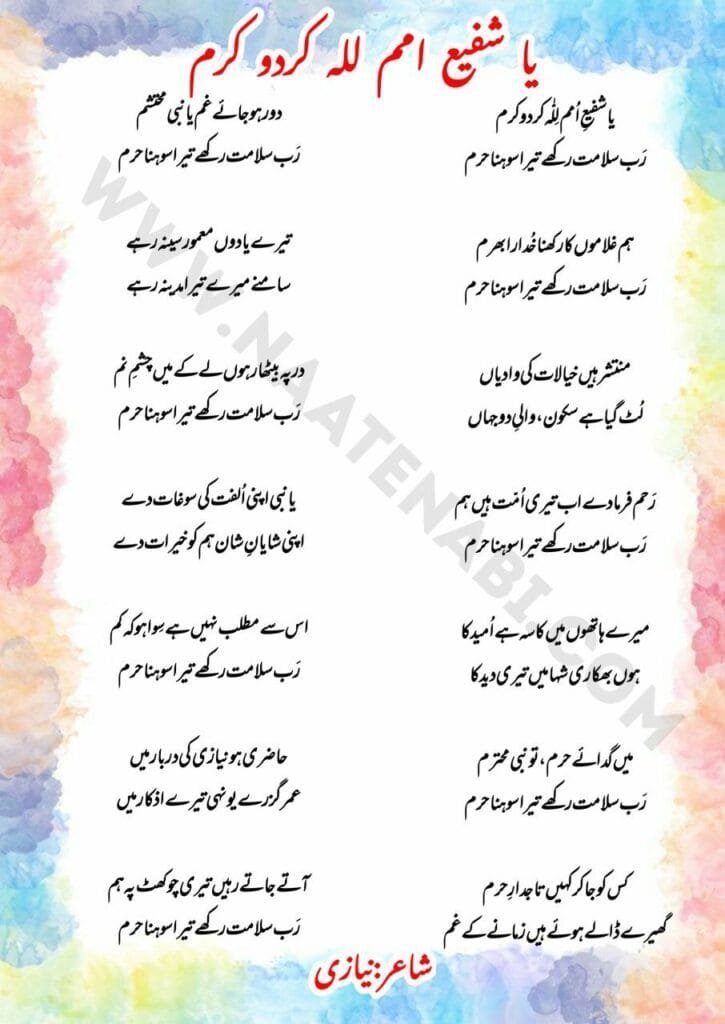 یا شفیع امم للہ کردو کرم
یا شفیعِ اُمم لِلّٰہ کر دو کرم
رَب سلامت رکھے تیرا سوہنا حرم
ہم غلاموں کا رکھنا خُدارا بھرم
رَب سلامت رکھے تیرا سوہنا حرم
منتشر ہیں خیالات کی وادیاں
لُٹ گیا ہے سکون، والیِ دو جہاں
رَحم فرما دے اب تیری اُمّت ہیں ہم
رَب سلامت رکھے تیرا سوہنا حرم
میرے ہاتھوں میں کاسہ ہے اُمید کا
ہوں بھکاری شہا میں تیری دید کا
میں گدائے حرم، تو نبی محترم
رَب سلامت رکھے تیرا سوہنا حرم
کس کو جا کر کہیں تاجدارِ حرم
گھیرے ڈالے ہوئے ہیں زمانے کے غم
دور ہو جائے غم یا نبی محتشم
رَب سلامت رکھے تیرا سوہنا حرم
تیرے یادوں معمور سینہ رہے
سامنے میرے تیرا مدینہ رہے
در پہ بیٹھا رہوں لے کے میں چشمِ نم
رَب سلامت رکھے تیرا سوہنا حرم
یا نبی اپنی اُلفت کی سوغات دے
اپنی شایانِ شان ہم کو خیرات دے
اس سے مطلب نہیں ہے سِوا ہو کہ کم
رَب سلامت رکھے تیرا سوہنا حرم
حاضری ہو نیازی کی دربار میں
عمر گزرے یونہی تیرے اذکار میں
آتے جاتے رہیں تیری چوکھٹ پہ ہم
رَب سلامت رکھے تیرا سوہنا حرم
شاعر: نیازی
WWW.NAATENABI.COM